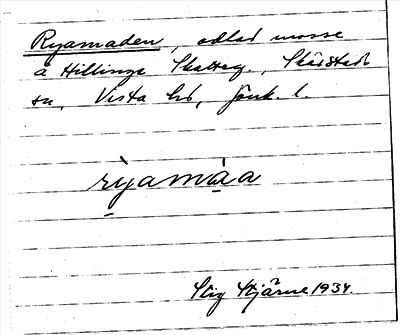 Ryamaden, odlad mosse
å Hillinge Skatteg., Skärstads
sn, Vista hd, Jönk. l.
rỳamàa
Stig Stjärne 1934.